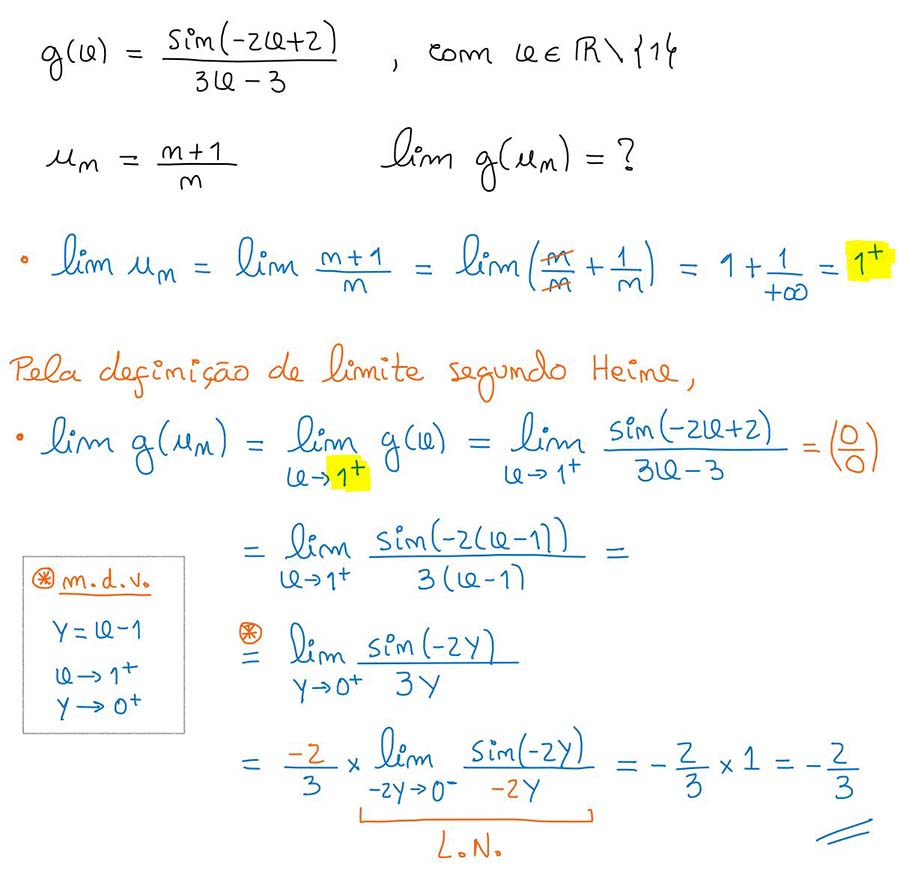 g(x) = sin(-2x+2) / (3x-3) , com x ∈ ℝ\{1}
uₙ = (n+1)/n    lim g(uₙ) = ?
• lim uₙ = lim (n+1)/n = lim(n/n + 1/n) = 1 + 1/+∞ = 1⁺
Pela definição de limite segundo Heine,
• lim g(uₙ) = lim_{x→1⁺} g(x) = lim_{x→1⁺} sin(-2x+2) / (3x-3) = (0/0)
= lim_{x→1⁺} sin(-2(x-1)) / 3(x-1) =
⊛ m.d.v.
y = x-1
x→1⁺
y→0⁺
⊛= lim_{y→0⁺} sin(-2y) / 3y
= -2/3 × lim_{-2y→0⁻} sin(-2y) / -2y = -2/3 × 1 = -2/3
L.N.